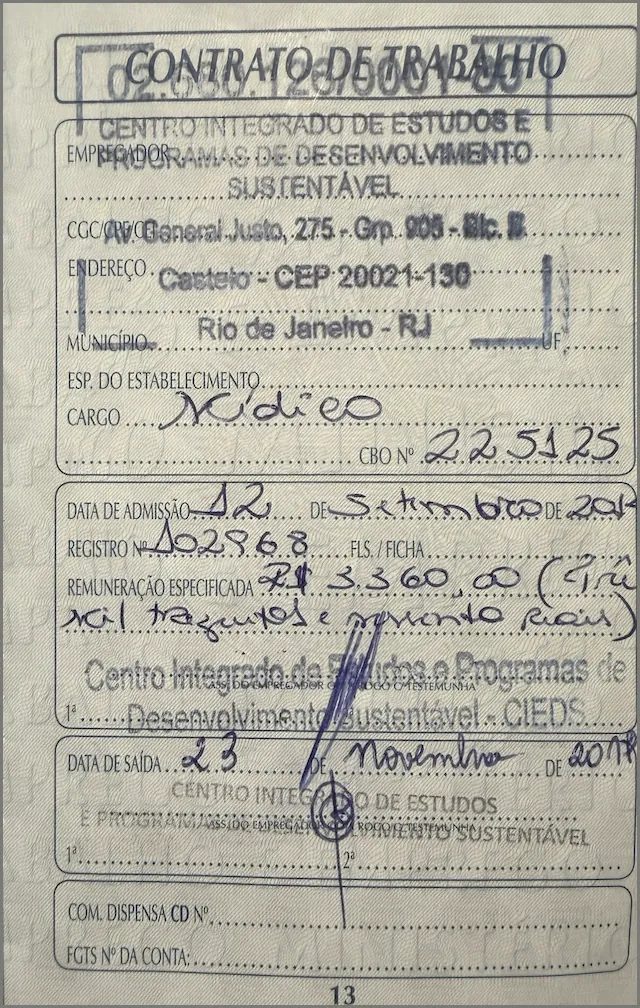 CONTRATO DE TRABALHO
CENTRO INTEGRADO DE ESTUDOS E
EMPREGADOR
PROGRAMAS DE DESENVOLVIMENTO
SUSTENTÁVEL
CGC/CPF/CEI
Av. General Justo, 275 - Grp. 905 - Blc. B
ENDEREÇO
Castelo - CEP 20021-130
Rio de Janeiro - RJ
MUNICÍPIO UF
ESP. DO ESTABELECIMENTO
CARGO Médico
CBO Nº 225125
DATA DE ADMISSÃO 12 DE Setembro DE
REGISTRO Nº 102968 FLS. / FICHA
REMUNERAÇÃO ESPECIFICADA R$ 3.360,00 (Três
mil trezentos e sessenta reais)
Centro Integrado de Estudos e Programas de
ASS. DO EMPREGADOR OU A ROGO C/ TESTEMUNHA
1ª Desenvolvimento Sustentável - CIEDS
DATA DE SAÍDA 23 DE Novembro DE
CENTRO INTEGRADO DE ESTUDOS
E PROGRAMAS DE DESENVOLVIMENTO SUSTENTÁVEL
ASS. DO EMPREGADOR OU A ROGO C/ TESTEMUNHA
1ª 2ª
COM. DISPENSA CD Nº
FGTS Nº DA CONTA:
13